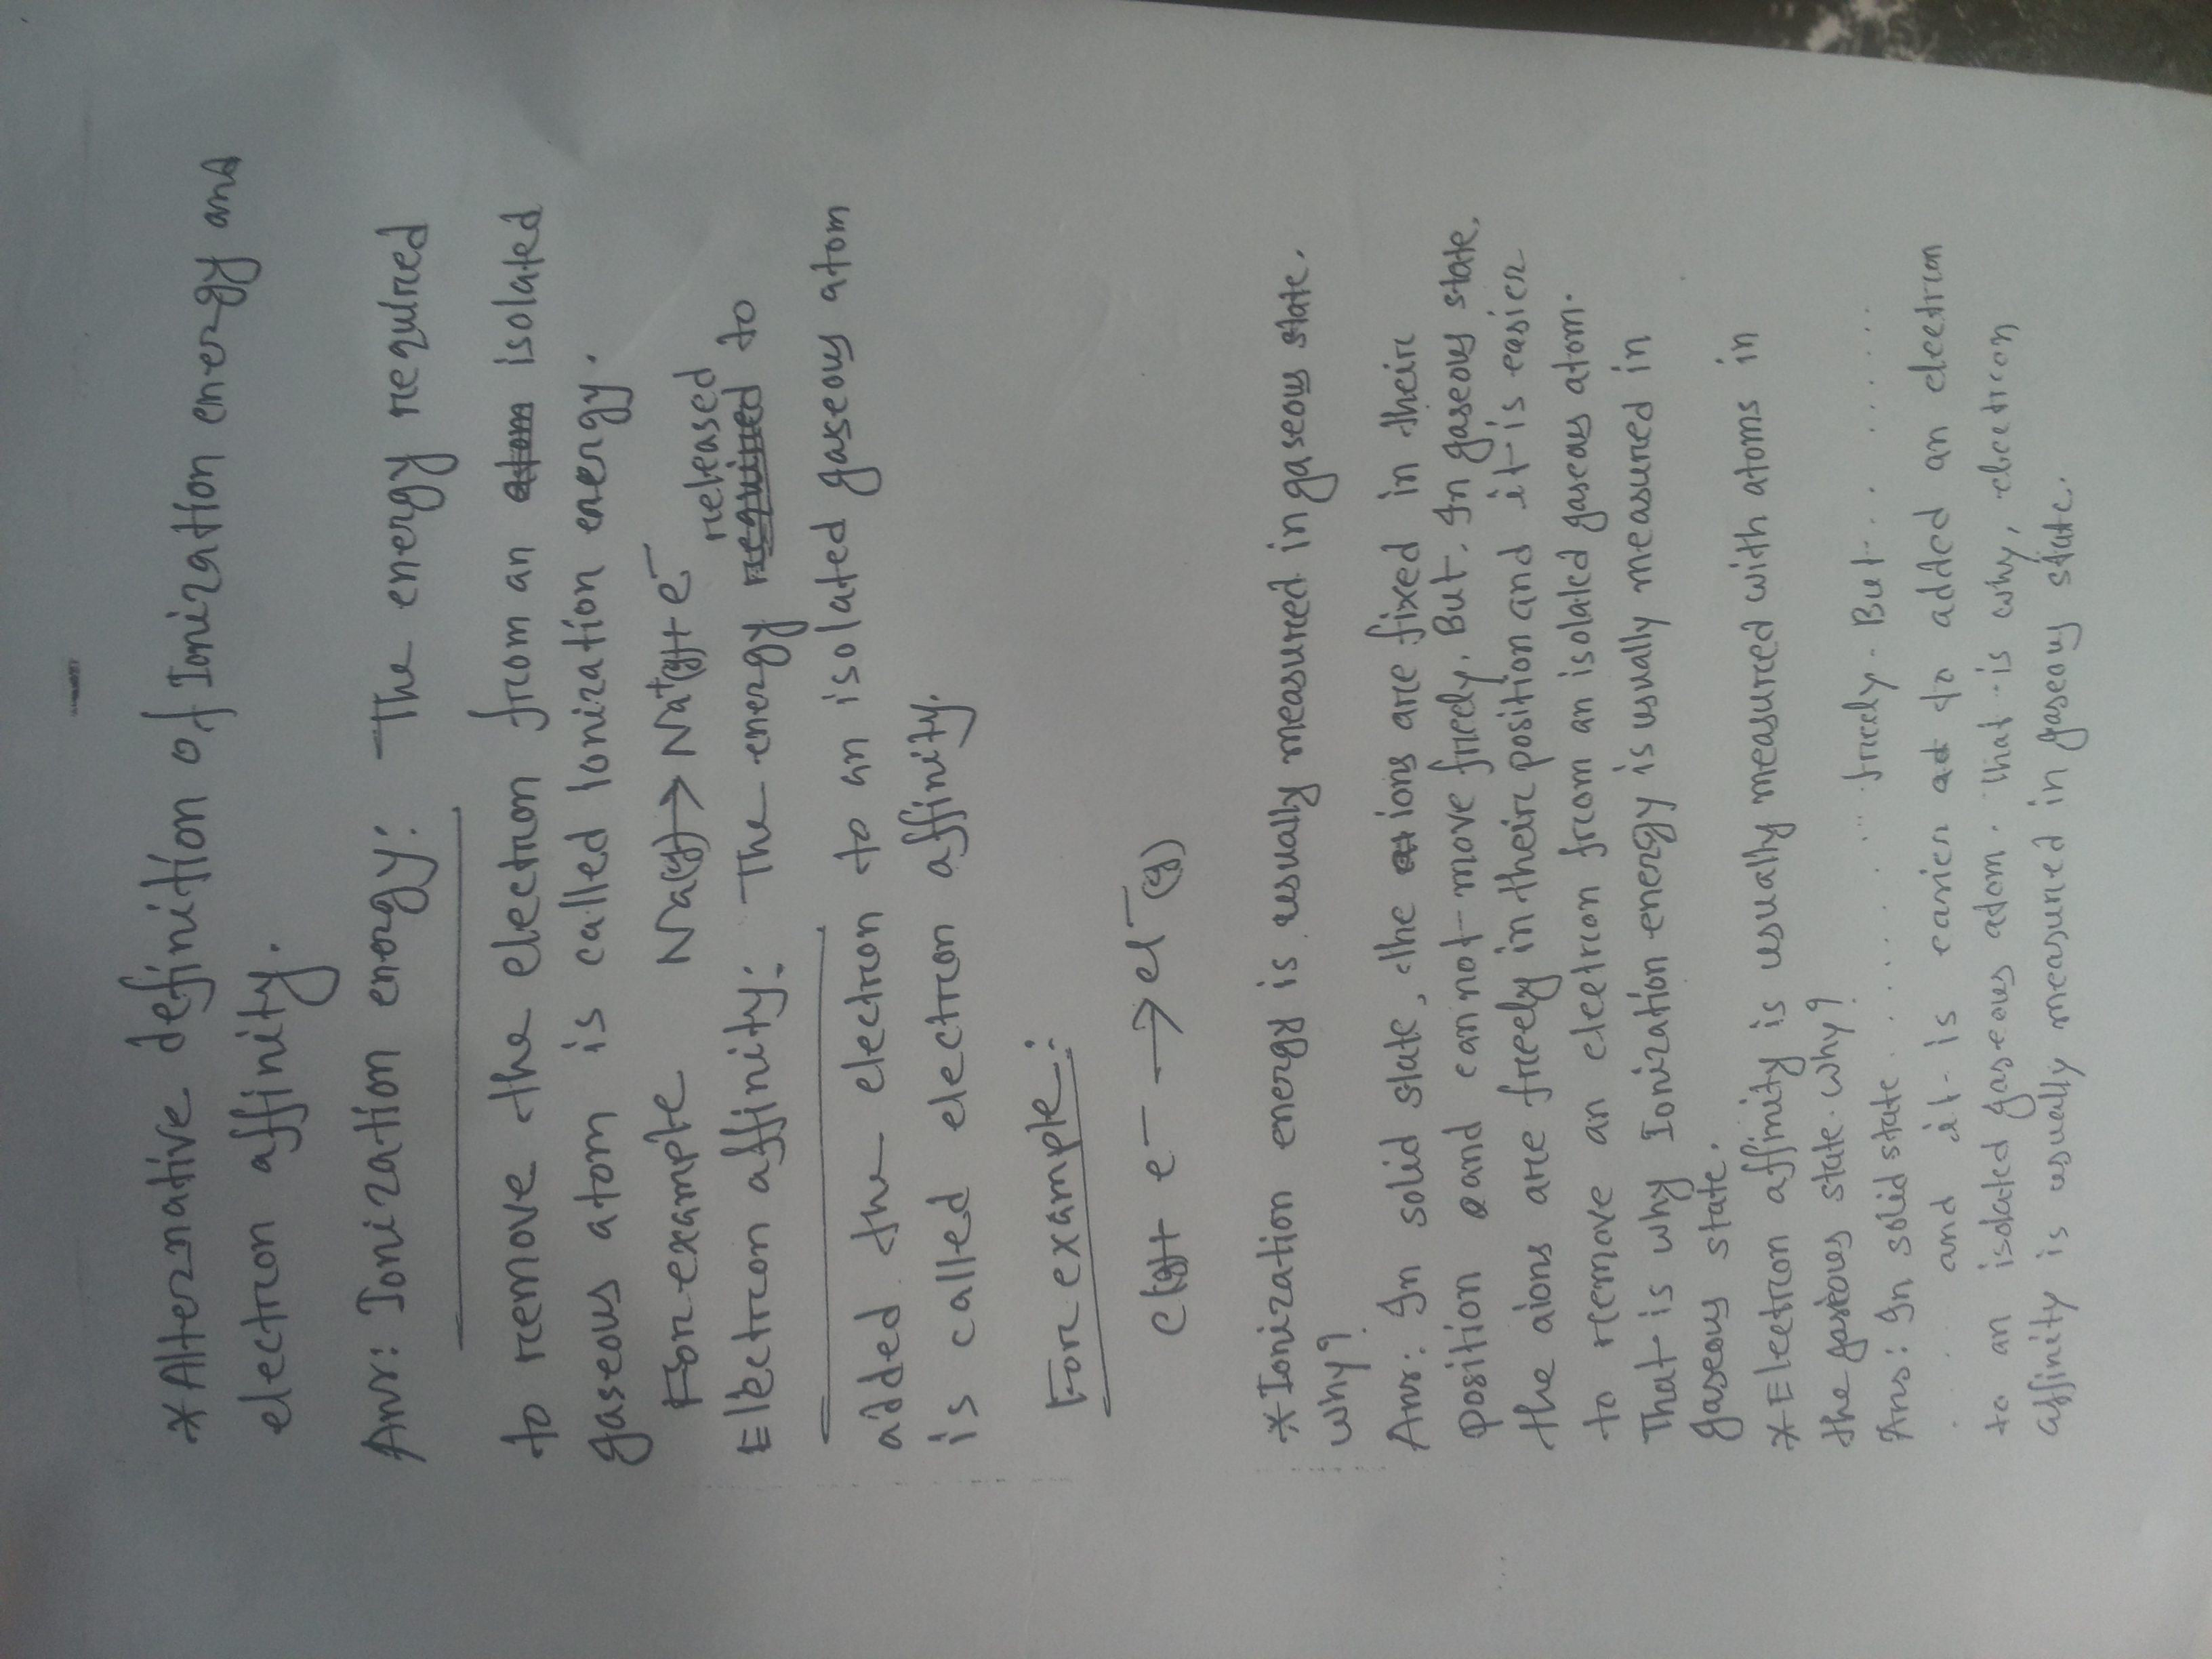 *Alternative definition of Ionization energy and
electron affinity.
Ans: Ionization energy: The energy required
to remove the electron from an atom isolated
gaseous atom is called Ionization energy.
For example Na(g)→ Na⁺(g)+ e⁻
released
Electron affinity: The energy required to
added the electron to an isolated gaseous atom
is called electron affinity.
For example:
Cl(g)+ e⁻ → Cl⁻(g)
*Ionization energy is usually measured in gaseous state.
Why?
Ans: In solid state, the ions are fixed in their
position and can not move freely. But. In gaseous state.
the aions are freely in their position and it is easier
to remove an electron from an isolated gaseous atom.
That is why Ionization energy is usually measured in
gaseous state.
*Electron affinity is usually measured with atoms in
the gaseous state. Why?
Ans: In solid state ........ freely. But ........
... and it is easier ad to added an electron
to an isolated gaseous atom. that is why, electron
affinity is usually measured in gaseous state.